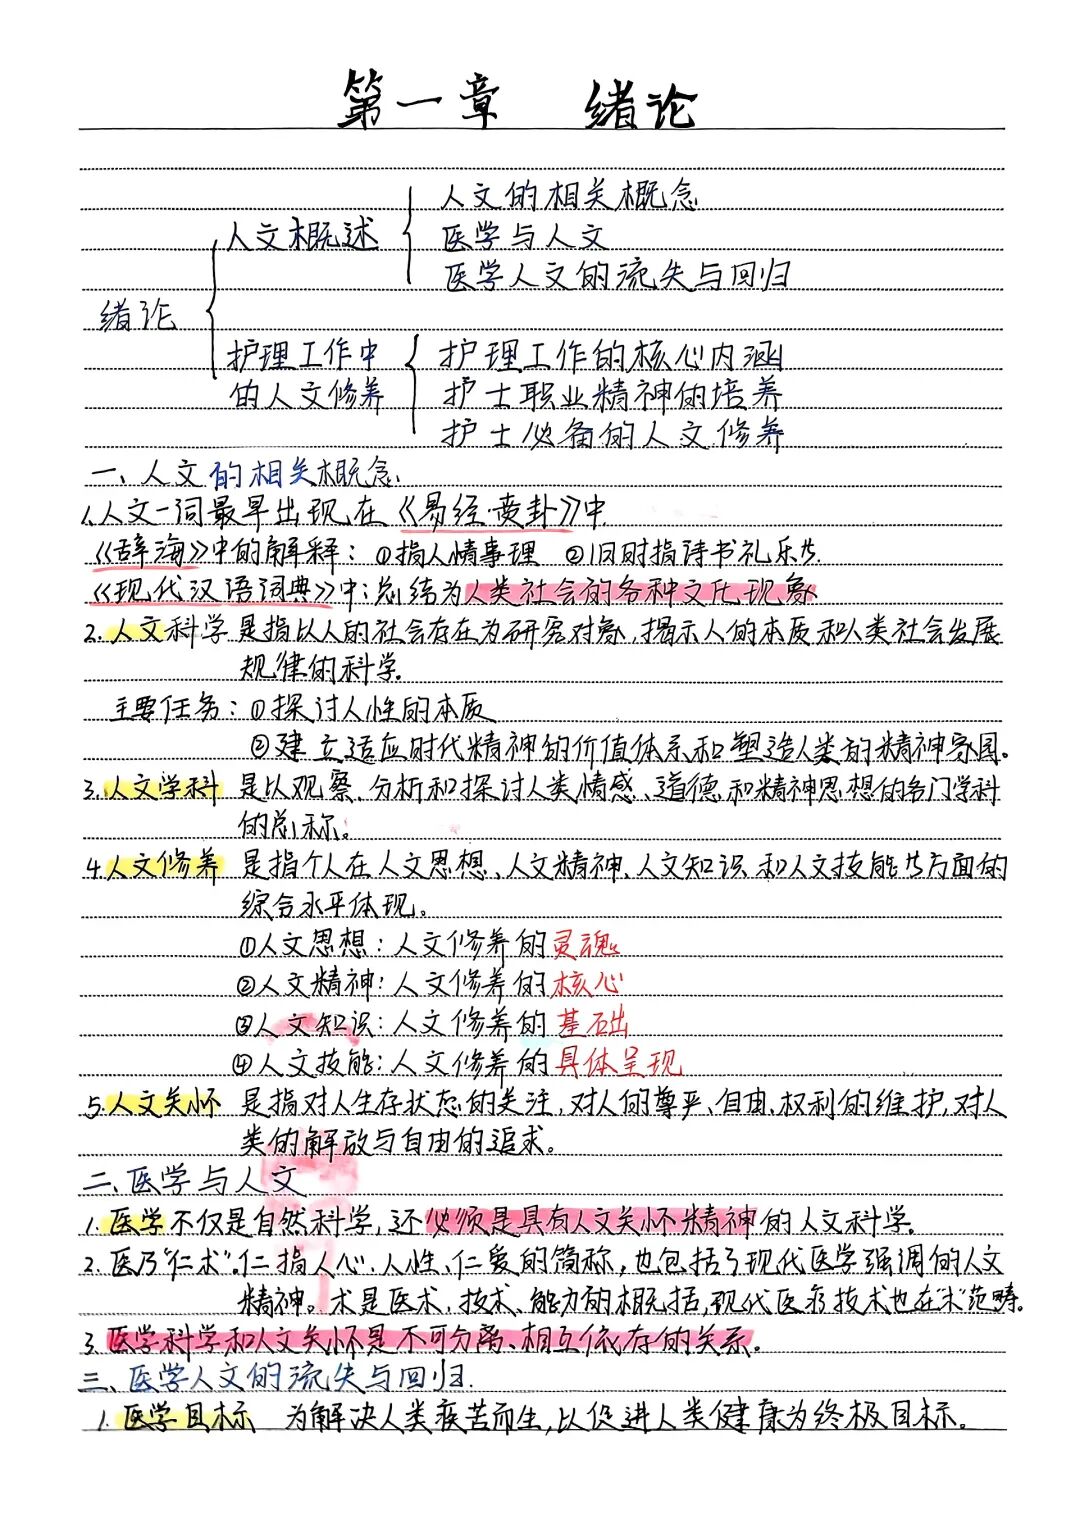 第一章 绪论
人文的相关概念
人文概述
医学与人文
医学人文的流失与回归
绪论
护理工作中
护理工作的核心内涵
的人文修养
护士职业精神的培养
护士必备的人文修养
一、人文的相关概念
1.人文一词最早出现在《易经·贲卦》中
《辞海》中的解释：①指人情事理 ②旧时指诗书礼乐等
《现代汉语词典》中：总结为人类社会的各种文化现象
2.人文科学 是指以人的社会存在为研究对象，揭示人的本质和人类社会发展
规律的科学
主要任务：①探讨人性的本质
②建立适应时代精神的价值体系和塑造人类的精神家园.
3.人文学科 是以观察、分析和探讨人类情感、道德和精神思想的各门学科
的总称。
4.人文修养 是指个人在人文思想、人文精神、人文知识和人文技能等方面的
综合水平体现。
①人文思想：人文修养的灵魂
②人文精神：人文修养的核心
③人文知识：人文修养的基础
④人文技能：人文修养的具体呈现
5.人文关怀 是指对人生存状态的关注，对人的尊严、自由、权利的维护，对人
类的解放与自由的追求。
二、医学与人文
1.医学不仅是自然科学，还必须是具有人文关怀精神的人文科学。
2.医乃"仁术"。仁指人心、人性、仁爱的简称，也包括了现代医学强调的人文
精神。术是医术，技术、能力的概括，现代医疗技术也在"术"范畴。
3.医学科学和人文关怀是不可分离、相互依存的关系。
三、医学人文的流失与回归.
1.医学目标 为解决人类疾苦而生，以促进人类健康为终极目标。